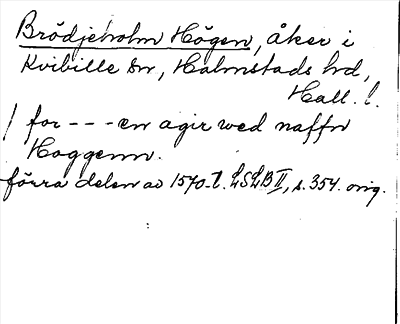 Brödjeholm Högen, åker i
Kvibille sn, Halmstads hd,
Hall. l.
/ for - - - en agir wed naffn
Hoggenn.
förra delen av 1570-t. LSLB II, s. 354. orig.